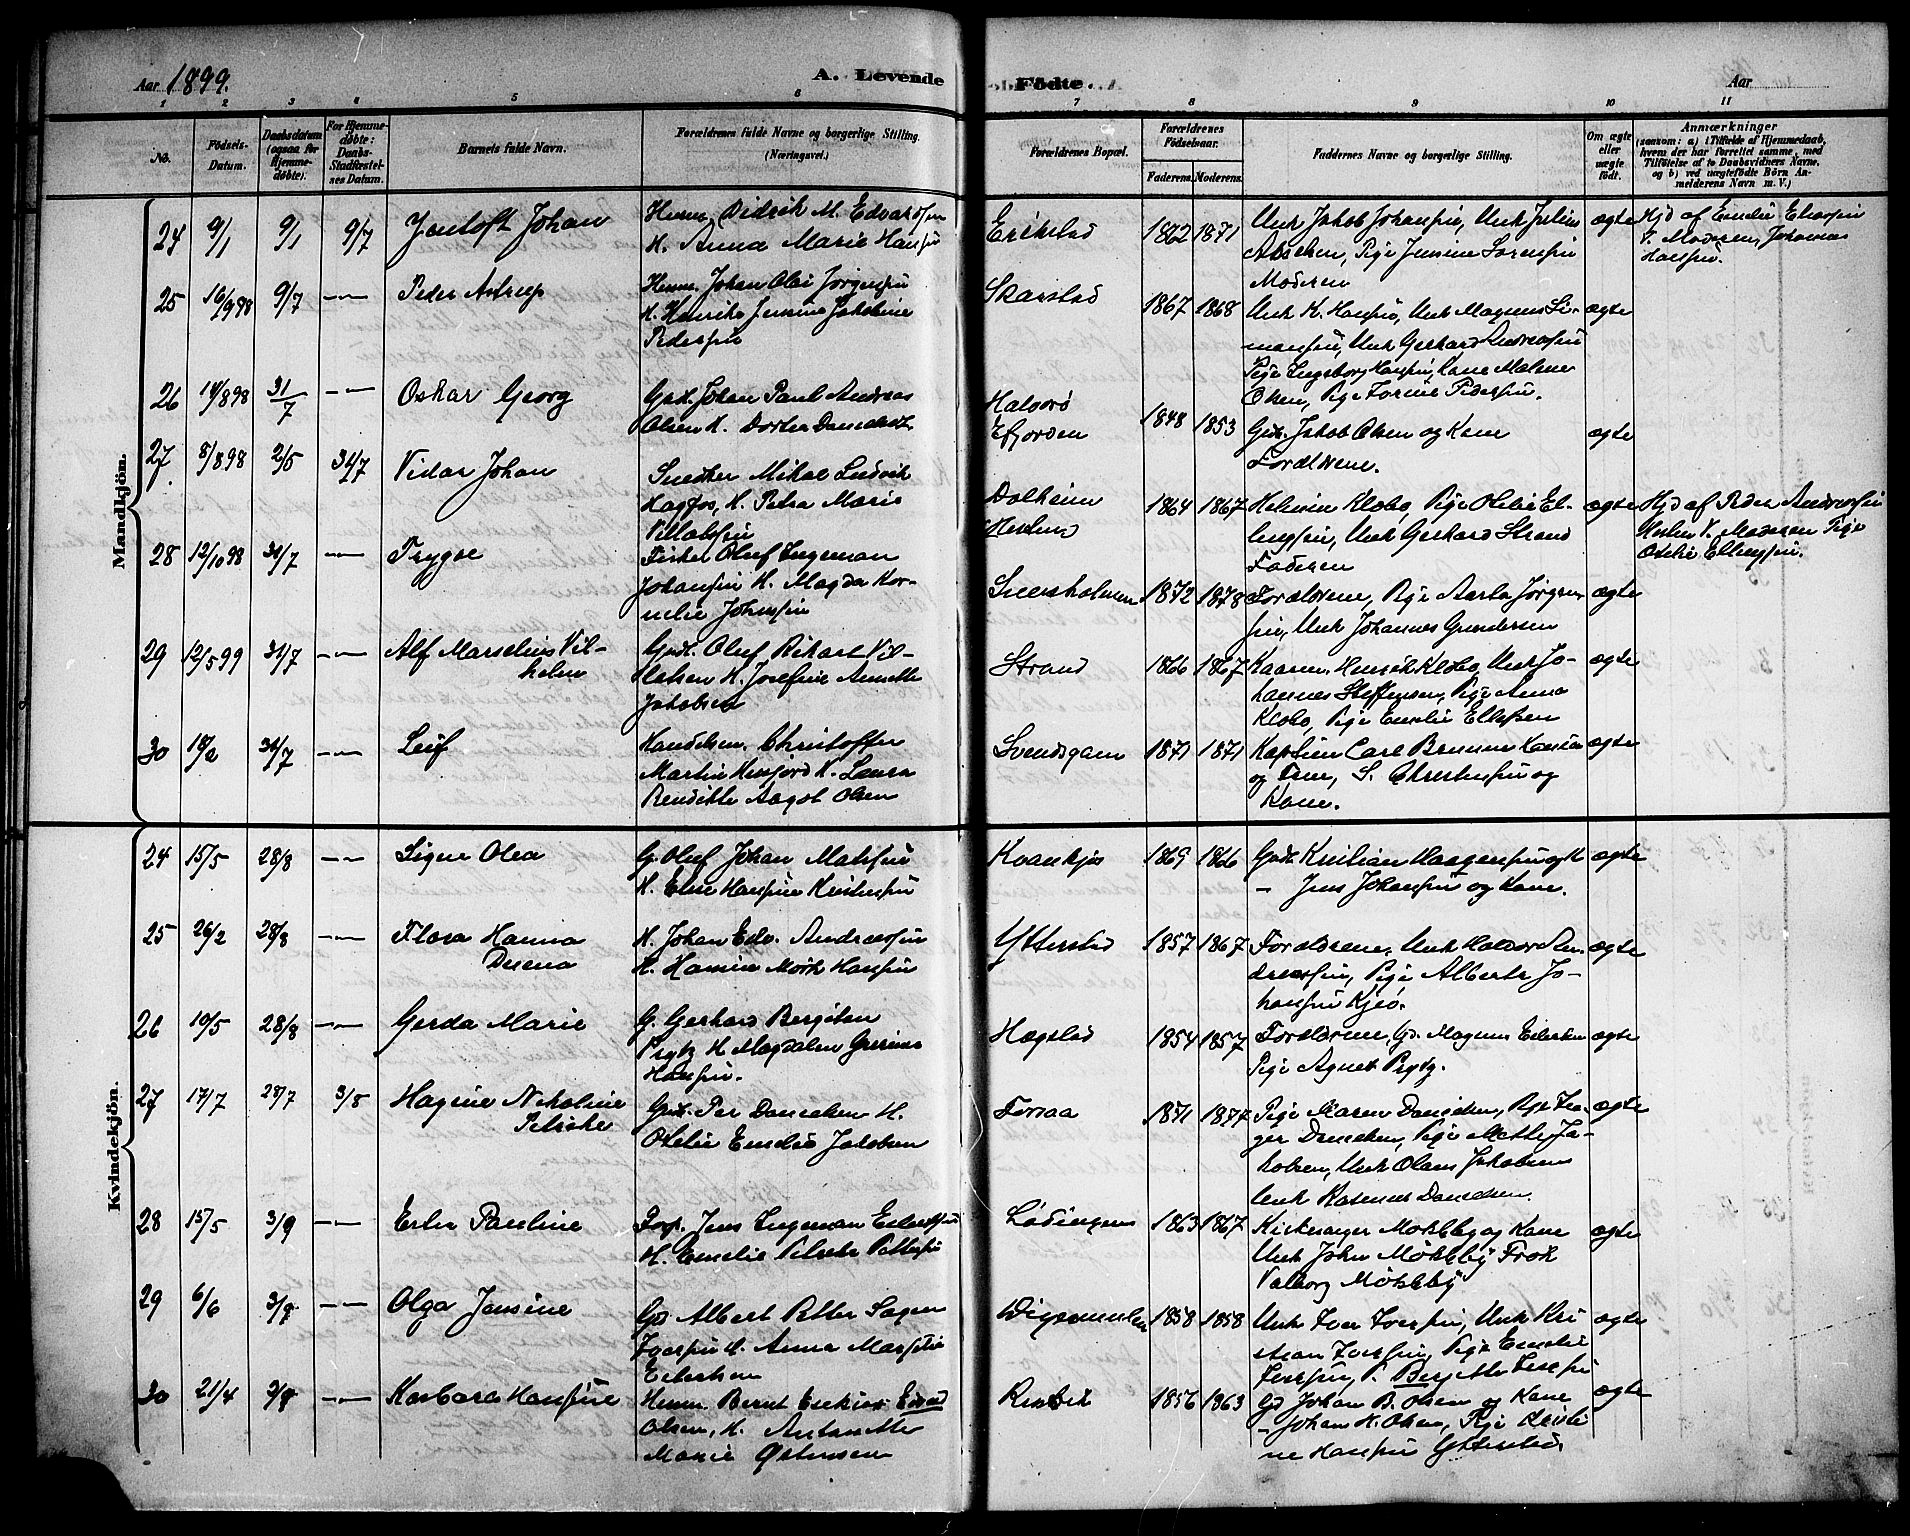 Aar 1899.
A. Levende
Födte.
Aar
1 2 3 4 5 6 7 8 9 10 11
No.
Födsels-
Datum.
Daabsdatum
(ogsaa for
Hjemme-
döbte).
For Hjemme-
döbte:
Daabs-
Stadfæstel-
ses Datum.
Barnets fulde Navn.
Forældrenes fulde Navne og borgerlige Stilling.
(Næringsvei.)
Forældrenes Bopæl.
Forældrenes
Födselsaar.
Faderens. Moderens.
Faddernes Navne og borgerlige Stilling.
Om ægte
eller
uægte
födt.
Anmærkninger
(saasom: a) i Tilfælde af Hjemmedaab,
hvem der har forrettet samme, med
Tilföielse af to Daabsvidners Navne.
og b) ved uægtefödte Börn An-
melderens Navn m. V.)
Mandkjön.
24 9/1 9/1 9/7 Jentoft Johan
Husm. Didrik M. Edvardsen
H. Anna Marie Hansen
Erikstad 1862 1871
Unk Jakob Johansen, Unk Julius
Pige Jensine Sørensen
Moderen
ægte
Hjd af Emilie Eliassen
V. Moderen, Johannes
Hansen.
25 16/9 98 9/7 -"- Peder Astrup
Husm. Johan Olai Jørgensen
H. Henrikke Jensine Jakobine
Pedersen
Skarstad 1867 1868
Unk K. Hansen, Unk Magnus Si-
monsen, Unk Gerhard Andreassen
Pige Ingeborg Hansen, Kone Malene
Olsen, Pige Torine Pedersen.
ægte
26 14/8 98 31/7 -"- Oskar Georg
Gadb. Johan Paul Andreas
Olsen H. Dortea Danielsdt.
Halvorø
Efjorden 1848 1853
Gdb. Jakob Olsen og Kone
Forældrene.
ægte
27 8/8 98 2/5 31/7 Vidar Johan
Snedker Mikal Ludvik
Hagfos, H. Petra Marie
Villatsen
Dalheim
1864 1867
Klobo, Pige Otelie El-
lingsen, Unk Gerhard Strand
Faderen
ægte
Hjd af Peder Andreassen
V. Moderen Pige
Otelie Ellingsen.
28 12/10 98 31/7 -"- Trygve
Fisker Oluf Ingeman
Johansen H. Magda Kor-
nelie Johnsen
Sneisholmen 1872 1878
Forældrene, Pige Aasta Jørgen-
sen, Unk Johannes Gundersen
ægte
29 12/5 99 31/7 -"- Alf Marselius Vil-
helm
Gdb. Oluf Rikart Vil-
H. Josefine Annette
Jakobsen
Strand 1866 1867
Henrik Klobo, Unk Jo-
hannes Steffensen, Pige Anna
Klobo, Pige Emelie Ellefsen
ægte
30 18/2 31/7 -"- Leif
Handelsm. Christoffer
Martin Hensjord H. Laura
Bendikte Aagot Olsen
Svendsgam 1871 1871
Kaptein Carl Brunnn Hansen
og Frue, S. Christensen og
Kone.
ægte
Kvindekjön.
24 15/5 28/8 -"- Signe Olea
G. Oluf Johan Matssen
H. Elise Hansine Kristensen
Kvankjos 1869 1866
Gdb. Kristian Haagensen og K
- Jens Johansen og Kone.
ægte
25 26/2 28/8 -"- Flora Hanna
H. Johan Edv. Andreassen
H. Hansine Mork Hansen
Ytterstad 1857 1867
Forældrene, Unk Halvor An-
dreassen, Pige Alberte Jo-
hansen Kjeø.
ægte
26 10/5 28/8 -"- Gerda Marie
G. Gerhard Bergiton
H. Magdalena
Hansen.
Hægstad 1854 1857
Forældrene, Gd. Magnus Eilertsen
Pige Agnet
ægte
27 17/7 28/7 3/8 Hagine Nikoline
Gdb. Per Danielsen H.
Otelie Emilie Jakobsen
Forsaa 1871 1877
Pige Maren Danielsen, Pige In-
ger Danielsen, Pige Mette Ja-
kobsen, Unk Olaus Jakobsen
Unk Rasmus Danielsen.
ægte
28 15/5 3/9 -"- Ester Pauline
Jens Ingeman Eilertsen
H. Emelie Petrea Pettersen
Lødingen 1863 1867
Kirkesanger Mökleby og Kone
Unk John Mökleby Frøk
Valborg Mökleby
ægte
29 6/6 3/9 -"- Olga Jensine
Gd Albert Petter Sagen
Iversen H. Anna Marselie
Eilertsen
Digermulen 1858 1858
Unk Iver Iversen, Unk Kri
stian Iversen, Pige Emilie
Iversen, P. Bergitte Iversen
ægte
30 21/4 3/9 -"- Karbara Hansine
Husm. Bernt Esekias Eivind
Olsen, H. Antonette
Marie Østensen
Rinbø 1856 1863
Gd Johan B. Olsen og Kone
- Johan H. Olsen, Pige Kristi
ne Hansen Ytterstad.
ægte